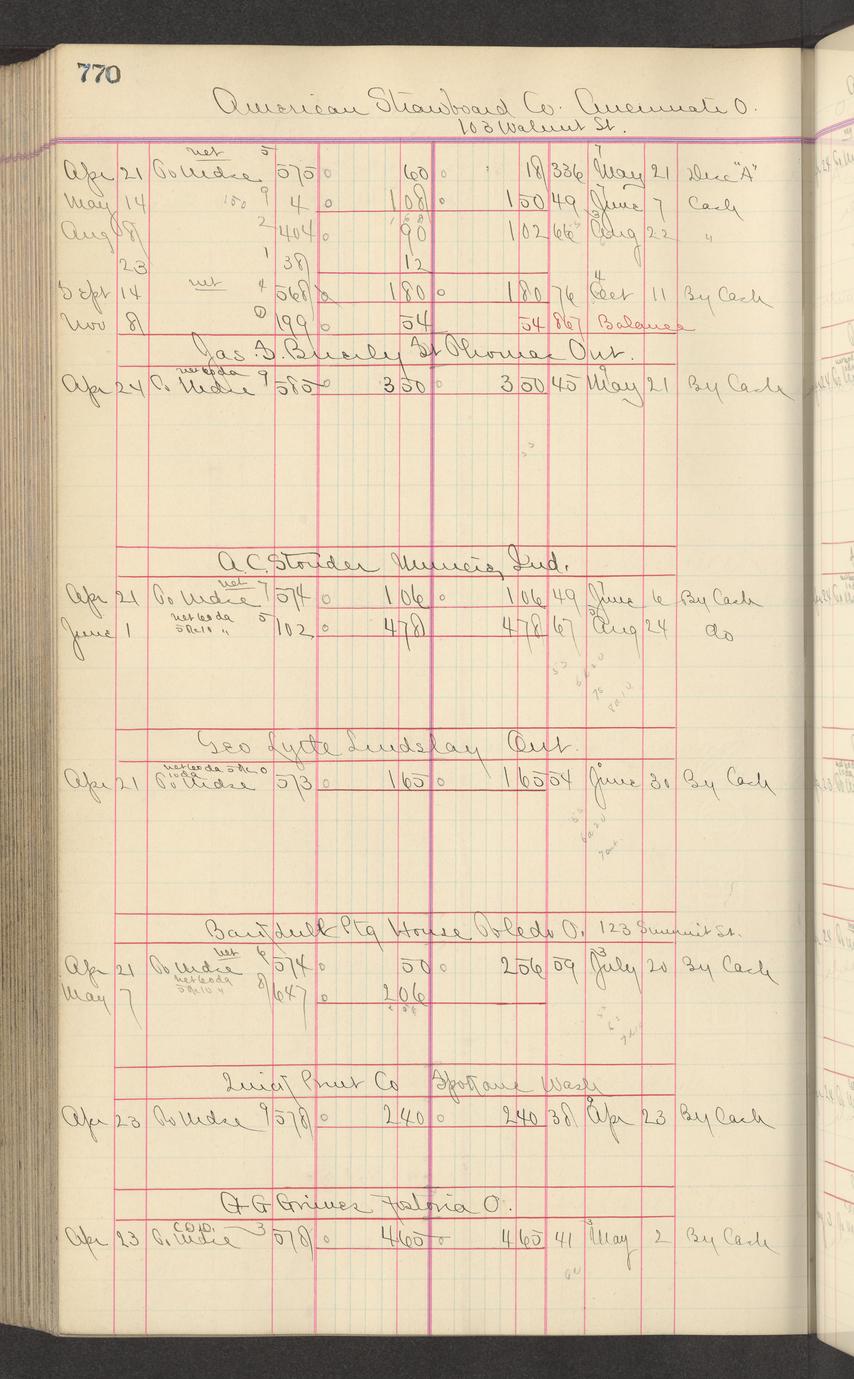 770
American Strawboard Co. Cincinnati O.
103 Walnut St.
net 5 7
Apr 21 To Mdse 575 60 18 336 May 21 Disc "A"
May 14 9 4 108 150 49 June 7 Cash
Aug 8 2 404 90 102 66 Aug 22 "
23 1 38 12
Sept 14 net 4 568 180 180 76 Oct 11 By Cash
Nov 8 0 199 54 54 867 Balance
St Thomas Ont.
net 60 da
Apr 24 To Mdse 9 585 350 350 45 May 21 By Cash
A. C. Stouder Muncie, Ind.
net
Apr 21 To Mdse 7 574 106 106 49 June 6 By Cash
net 60 da
June 1 5% 10 " 5 102 478 478 67 Aug 24 do
Geo Lytle Lindsay Ont.
net 60 da 5% 0
10 da
Apr 21 To Mdse 573 165 165 54 June 30 By Cash
Ptg House Toledo O. 123 Summit St.
net 6
Apr 21 To Mdse 574 50 256 59 July 20 By Cash
net 60 da
May 7 5% 10 " 8 647 206
Quick Print Co Spokane Wash
Apr 23 To Mdse 9 578 240 240 38 Apr 23 By Cash
A G Grimes Fostoria O.
C.O.D.
Apr 23 To Mdse 3 578 465 465 41 May 2 By Cash